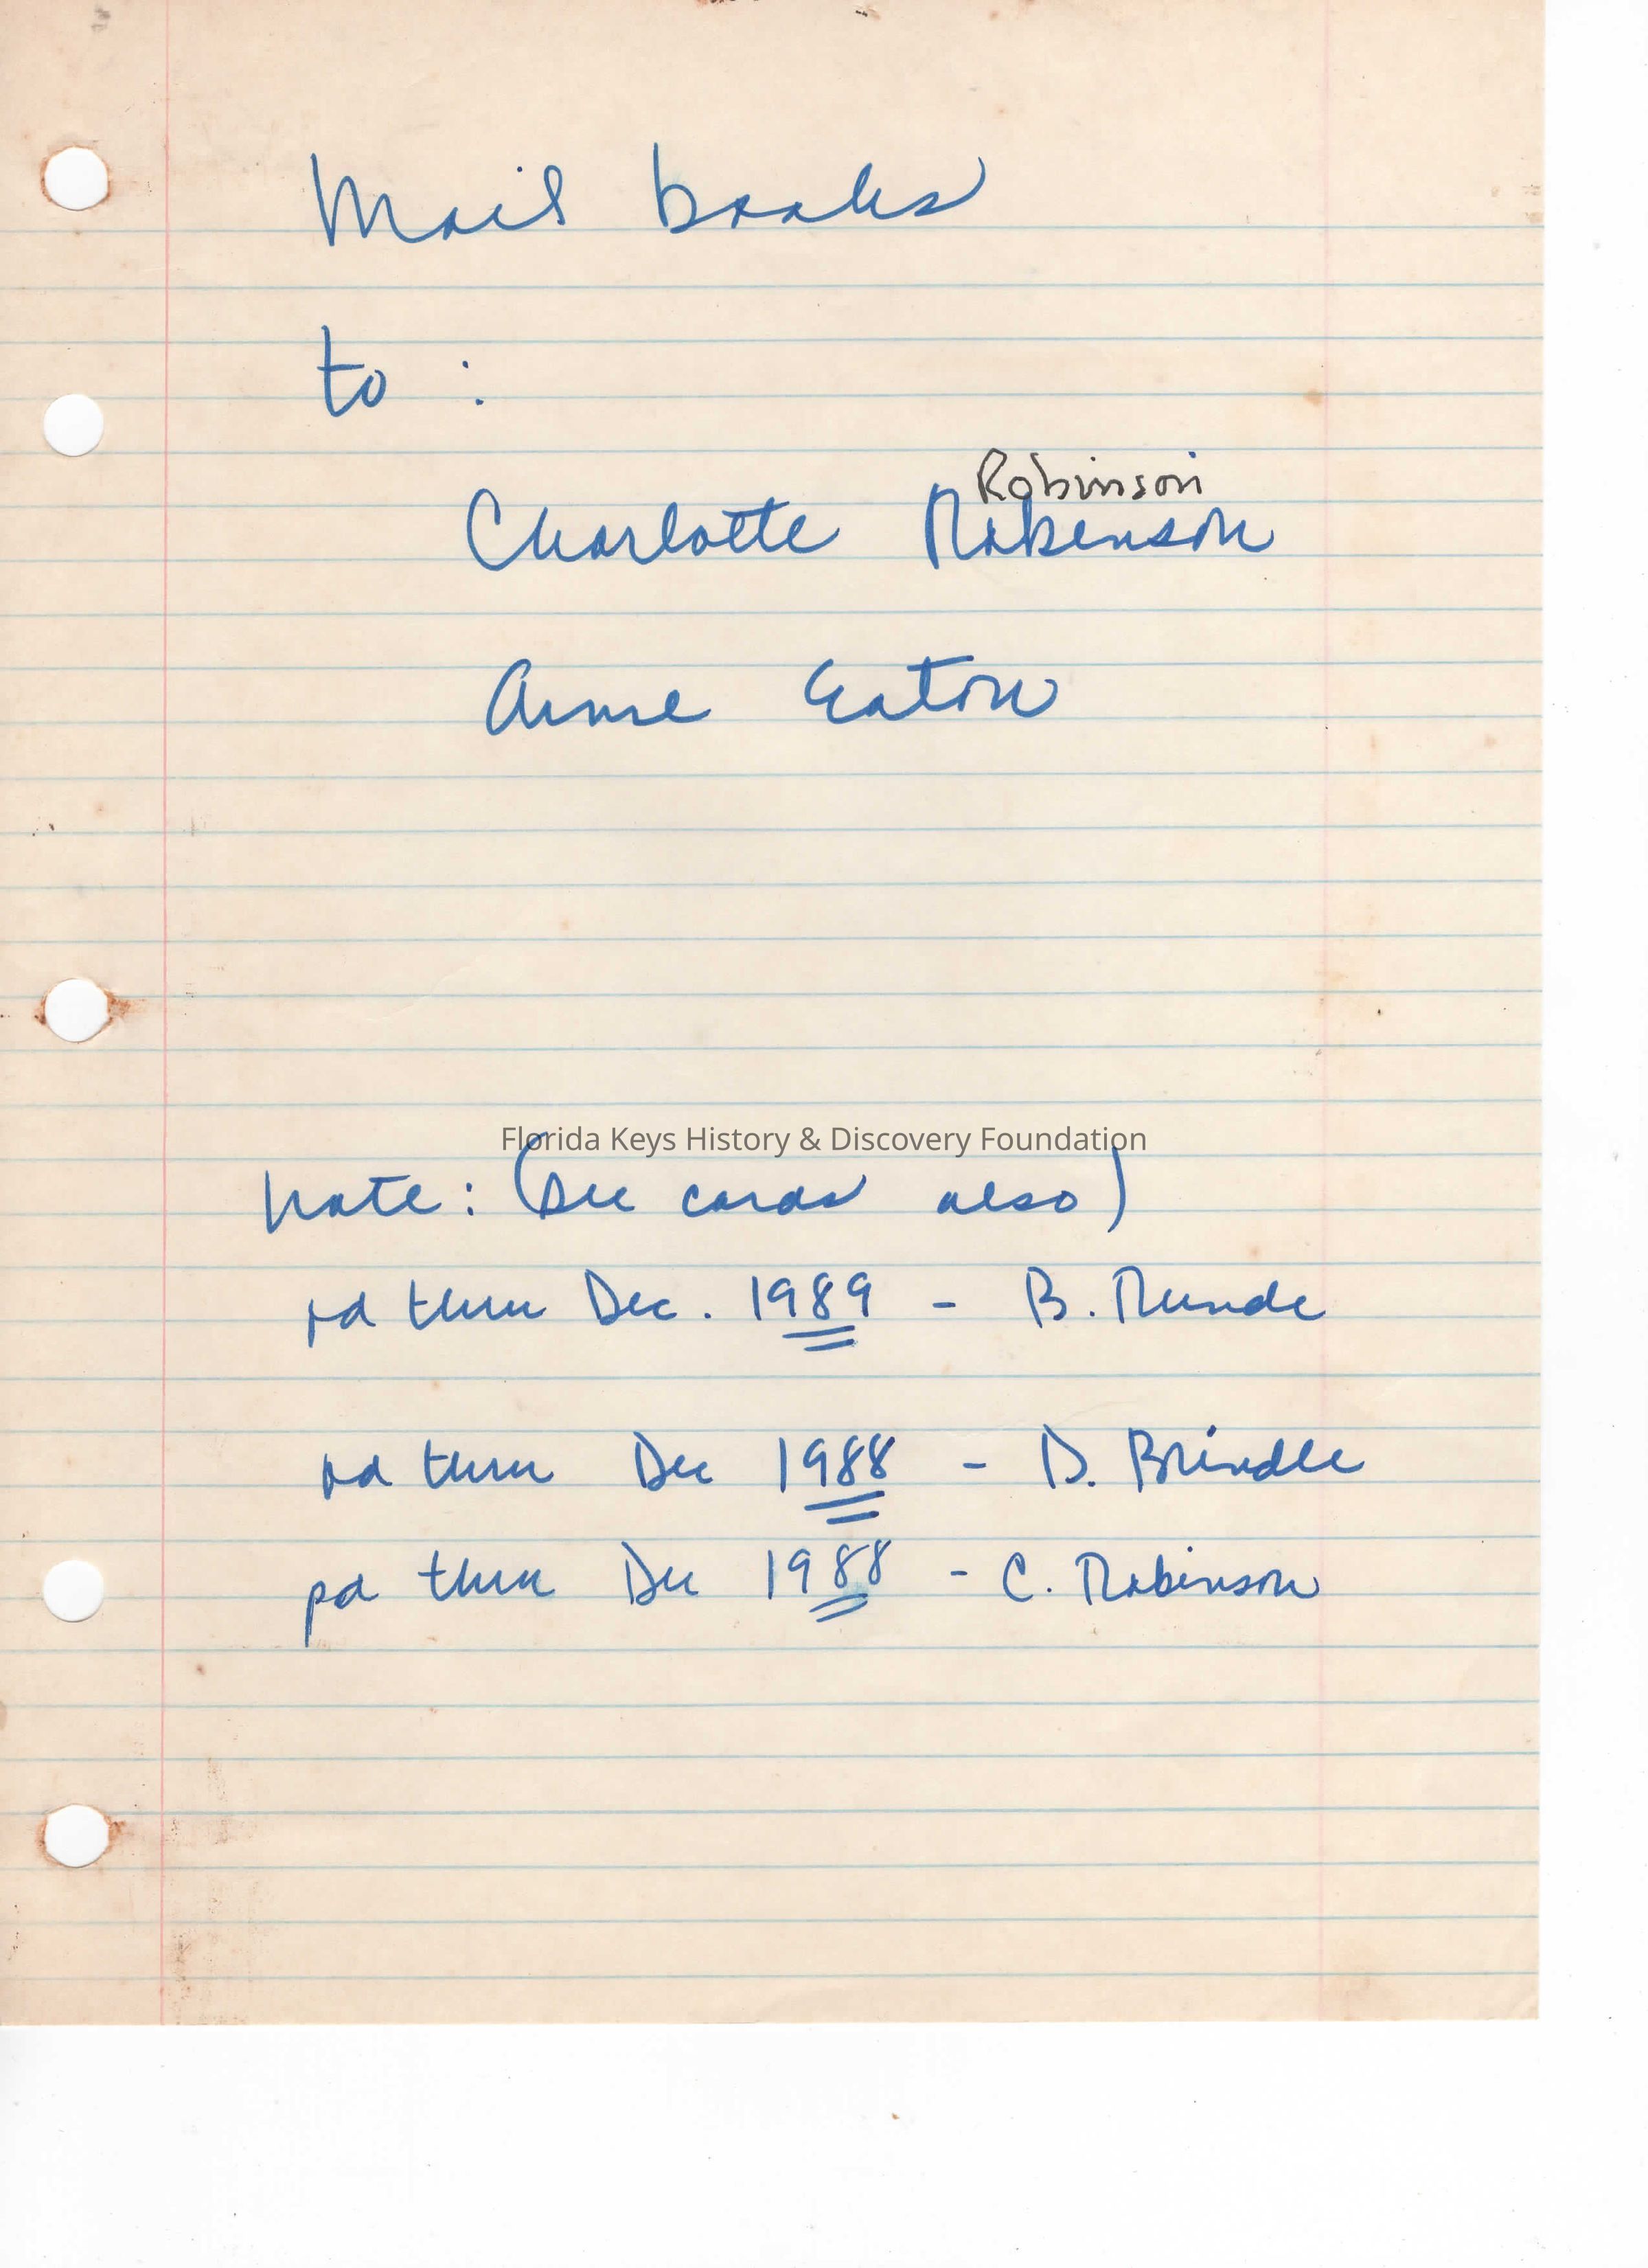 Mail books
to :
Robinson
Charlotte Robenson
Anne Eaton
Florida Keys History & Discovery Foundation
Note: (See cards also)
pd thru Dec. 1989 - B.
pd thru Dec 1988 - D. Brindle
pd thru Dec 1988 - C. Robinson